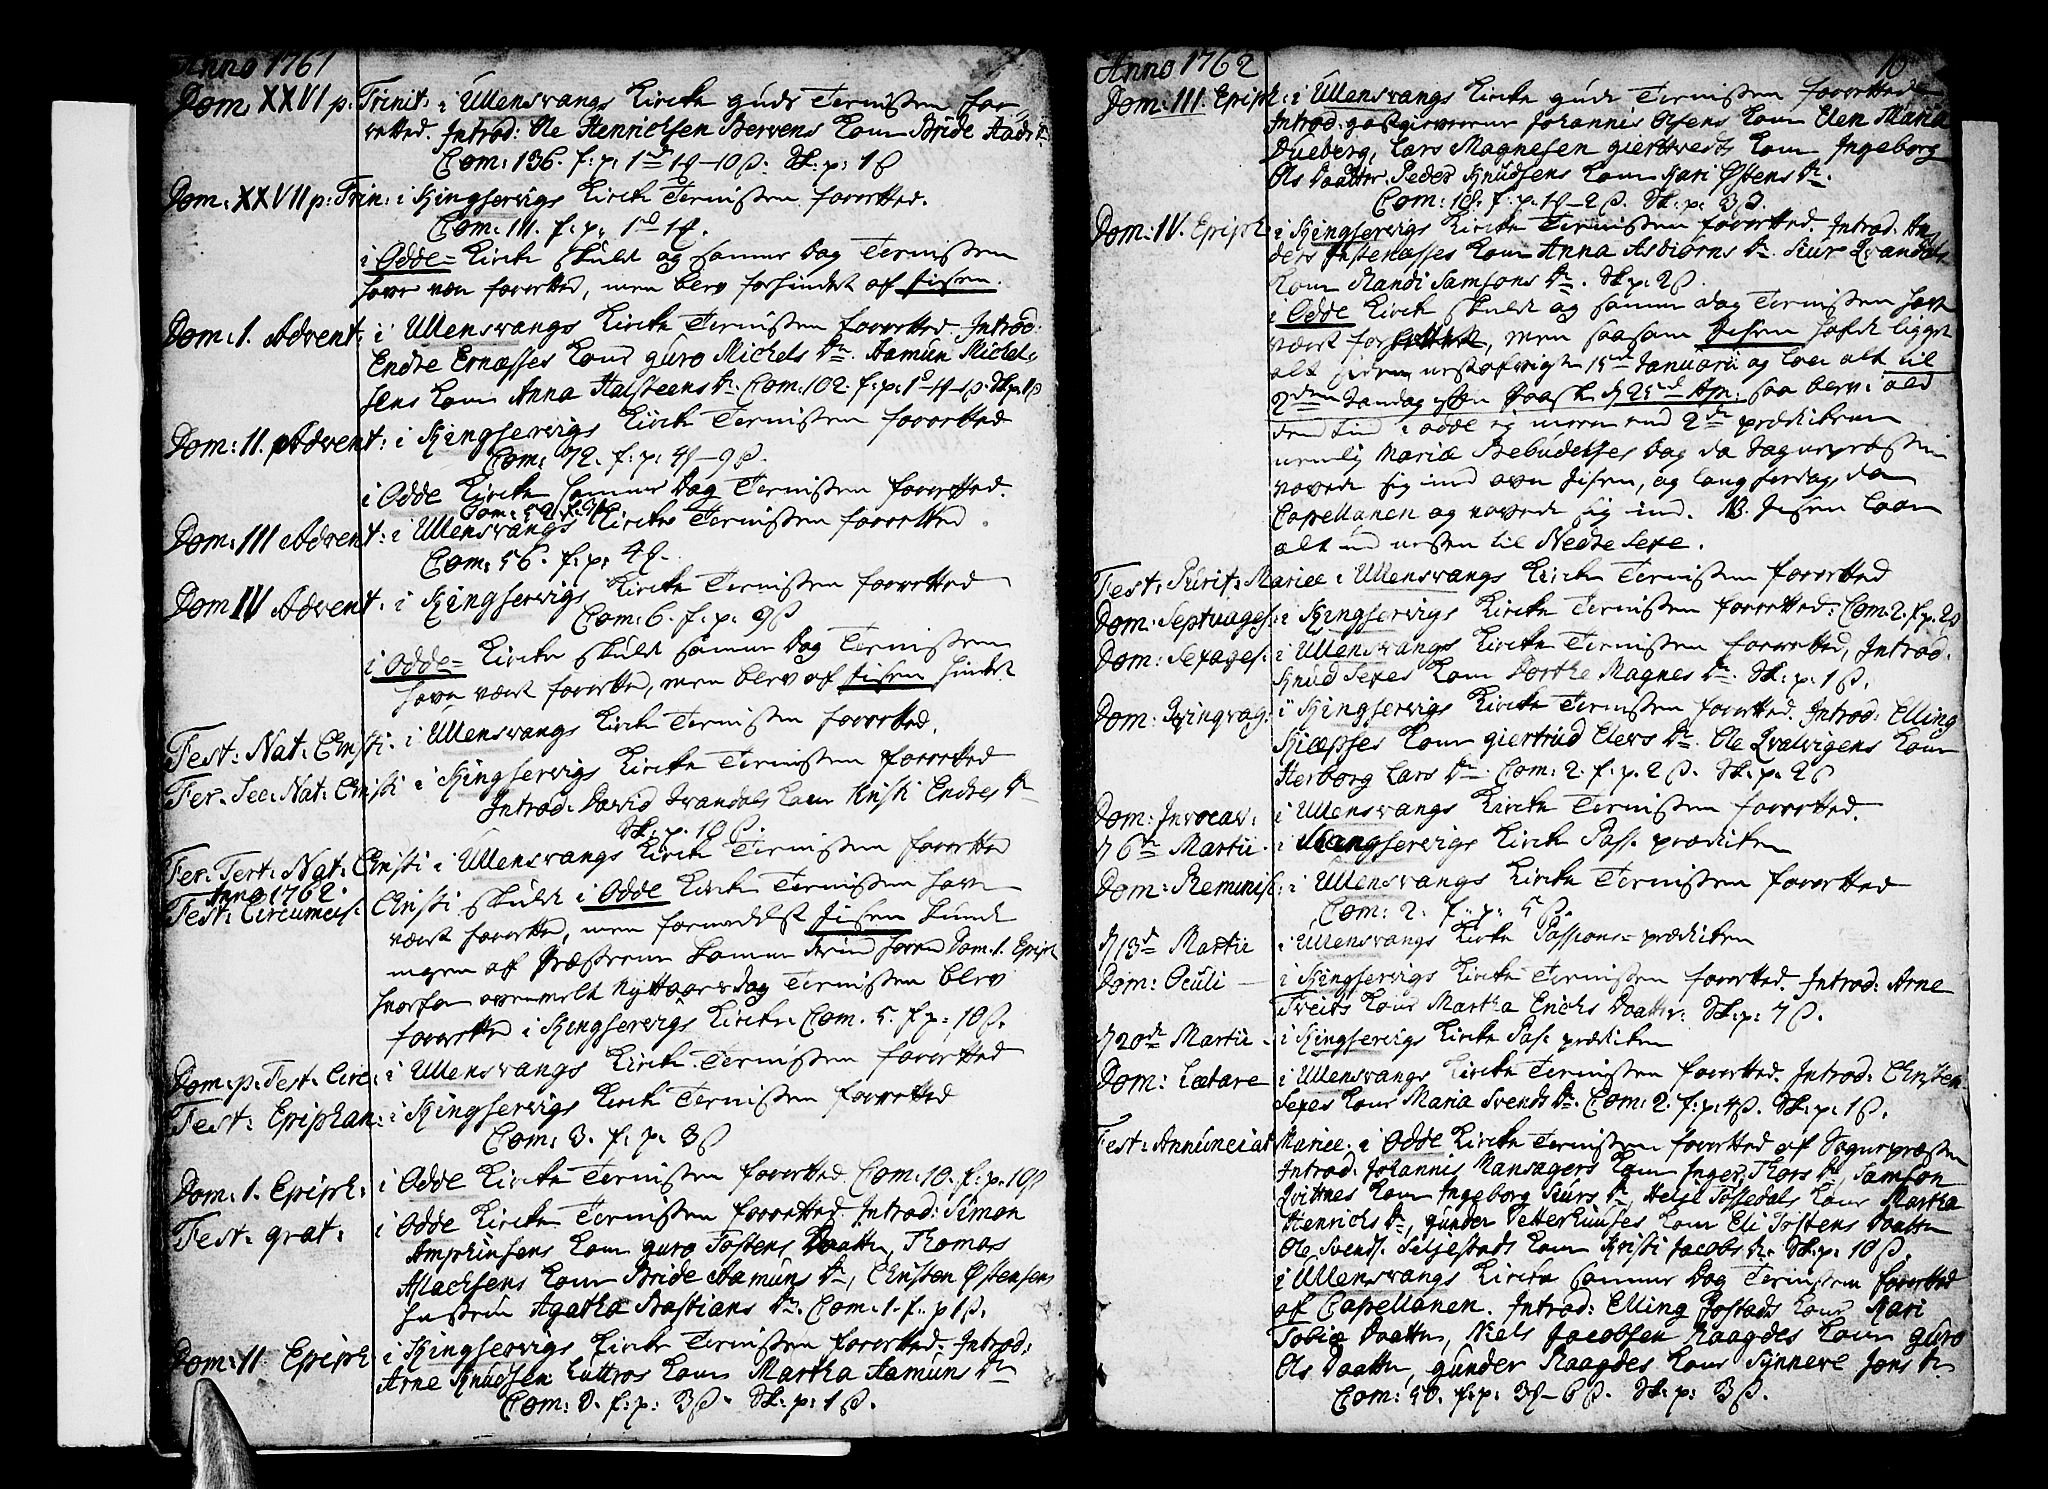 Anno 1761
Dom XXVI p. Trinit: i Ullensvangs Kircke Guds Tienisten for=
retted. Introd: Ole Henrichsen Bervens Kone Bride Aads D.
Com: 136. f: p: 1 rd 1 ℳ - 10 ß. Sk: p: 1 ß
Dom: XXVII p: Trin: i Kingservigs Kircke Tienisten forretted.
Com: 111. f: p: 1 rd 1 ℳ.
i Odde= Kircke skulde og samme Dag Tienisten
have været forrettet, men blev forhindret af Jisen.
Dom: 1. Advent: i Ullensvangs Kircke Tienisten forretted. Introd:
Endre Ernæsses Kone Guro Michels Dr. Aamun Michel=
sens Kone Anna Halsteens Dr. Com: 102. f: p: 1 rd - 4 ℳ - ß. Sk: p: 1 ß
Dom: 11. Advent: i Kingservigs Kircke Tienisten forretted
Com: 72. f: p: 4 ℳ - 9 ß.
i Odde Kircke samme Dag Tienisten forretted.
Dom: III Advent: i Ullensvangs Kircke Tienisten forretted
Com: 56. f: p: 4 ℳ.
Dom IV Advent: i Kingservigs Kircke Tienisten forretted
Com: 6. f: p: 9 ß
i Odde= Kircke skulde samme Dag Tienisten
have været forrettet, men blev af Jisen hindret
Fest: Nat: Christi: i Ullensvangs Kircke Tienisten forretted.
Fer: Sec: Nat: Christi i Kingservigs Kircke Tienisten forretted
Introd. David Kone Kristi Endres Dr
Sk: p. 10 ß.
Fer: Tert: Nat: Christi i Ullensvangs Kircke Tienisten forretted
Anno 1762
Fest: Circumcis: Christi skulde i Odde Kircke Tienisten have
været forrettet, men formedelst Jisen kunde
ingen af Præsterne komme Dom. 1. Epiph
hvorfor ovenmelte Nyttaarsdag Tienisten blev
forrettet i Kingservigs Kircke. Com. 5. f: p: 10 ß.
Dom: p: Fest: Circ: i Ullensvangs Kircke Tienisten forretted
Fest: Epiphan: i Kingservigs Kircke Tienisten forretted
Com: 3. f: p: 3 ß
Dom: 1. Epiph: i Odde Kircke Tienisten forrettet. Com: 10. f: p.
Fest: grat: i Odde Kircke Tienisten forrettet. Introd: Simon
Amphinsens Kone Guro Tostens Daatter, Thomas
Aslachsens Kone Bride Aamuns Dr, Christen Østensens
Hustru Agatha Bastians Dr. Com: 1. f: p 1 ß.
Dom: 11 Epiph: i Kingservigs Kircke Tienisten forrettet. Introd:
Arne Knudsen Luttros Kone Martha Aamuns Dr
Com: 8. f: p: 3 ß. Sk: p: 1 ß.
Anno 1762
10
Dom: III. Epiph: i Ullensvangs Kircke Guds Tienisten forrettede
Introd: Johannis Olsens Kone Elen Maria
Dueberg, Lars Magnesen Giertvedts Kone Ingeborg
Ols Daatter. Peder Knudsens Kone Kari Østens Dr.
Com: 18. f: p. 1 ℳ - 2 ß. Sk: p: 3 ß.
Dom: IV. Epiph: i Kingservigs Kircke Tienisten forrettet. Introd. An=
ders Kone Anna Asbiørns Dr. Siur Qvandals
Kone Randi Samsons Dr. Sk: p: 2 ß.
i Odde Kircke skulde og samme Dag Tienisten have
været forrettet, men saasom Jisen hafde ligget
alt siden 15de Januarii og laae alt til
2den Søndag efter Paaske d. 25de Apr: saa blev i all
den tiid i Odde ej meere end 2de prædikener
nemlig Mariæ Bebudelses Dag da Sognepræsten
vovede sig ind over Jisen, og langfredag, da
Capellanen og vovede sig ind. NB. Jisen laae
alt ud næsten til Nedre Sexe.
Fest: Purif: Mariæ i Ullensvangs Kircke Tienisten forretted
Dom: Septuages: i Kingservigs Kircke Tienisten forrettet: Com: 2. f: p. 2 ß
Dom: Sexages: i Ullensvangs Kircke Tienisten forrettet, Introd.
Knud Sexes Kone Dorthe Magnes Dr. Sk: p: 1 ß.
Dom: Qvinqvag: i Kingservigs Kircke Tienisten forrettet. Introd: Elling
Kone Giertrud Elevs Dr. Ole Qvalvigens Kone
Herborg Lars Dr. Com: 2. f. p. 2 ß. Sk: p. 2 ß
Dom: Invocav: i Ullensvangs Kircke Tienisten forrettet.
d 6te Martii - i Kingservigs Kircke Pas. prædiken
Dom: Reminisc: i Ullensvangs Kircke Tienisten forrettet
Com: 2. f: p: 5 ß.
d 13de Martii i Ullensvangs Kircke Passions= prædiken
Dom: Oculi - i Kingservigs Kircke Tienisten forrettet. Introd: Arne
Tveits Kone Martha Erichs Daatter: Sk: p: 7 ß.
d 20de Martii - i Kingservigs Kircke Pas. prædiken
Dom: Lætare i Ullensvangs Kircke Tienisten forrettet. Introd: Christen
Sexes Kone Maria Svends Dr. Com: 2. f: p: 4 ß. Sk: p: 1 ß.
Fest: Annunciat Mariæ. i Odde Kircke Tienisten forrettet af Sognepræsten
Introd: Johannis Mansagers Kone Inger Thors Dr, Samson
Qvitnes Kone Ingeborg Siurs Dr, Helje Tossedals Kone Martha
Henrichs Dr, Gunder Petterhuuses Kone Eli Tostens Daatter
Ole Svends. Seljestads Kone Kristi Jacobs Dr. Sk: p: 10 ß.
i Ullensvangs Kircke samme Dag Tienisten forrettet
af Capellanen. Introd: Elling Jostads Kone Kari
Tobiæ Daatter, Niels Jacobsen Raagdes Kone Guro
Ols Daatter, Gunder Raagdes Kone Synneve Jons Dr.
Com: 50. f: p: 3 ℳ - 6 ß. Sk: p: 3 ß.